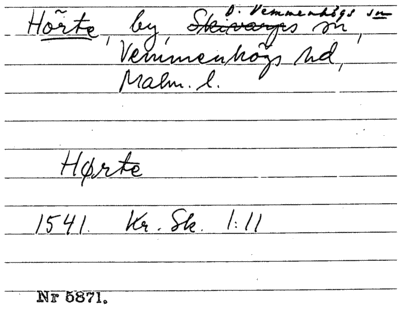 D. Vemmenhögs sn
Hörte, by, Skivarps sn,
Vemmenhögs hd,
Malm. l.
Hørte
1541. Kr. Sk. 1:11
Nr 5871.